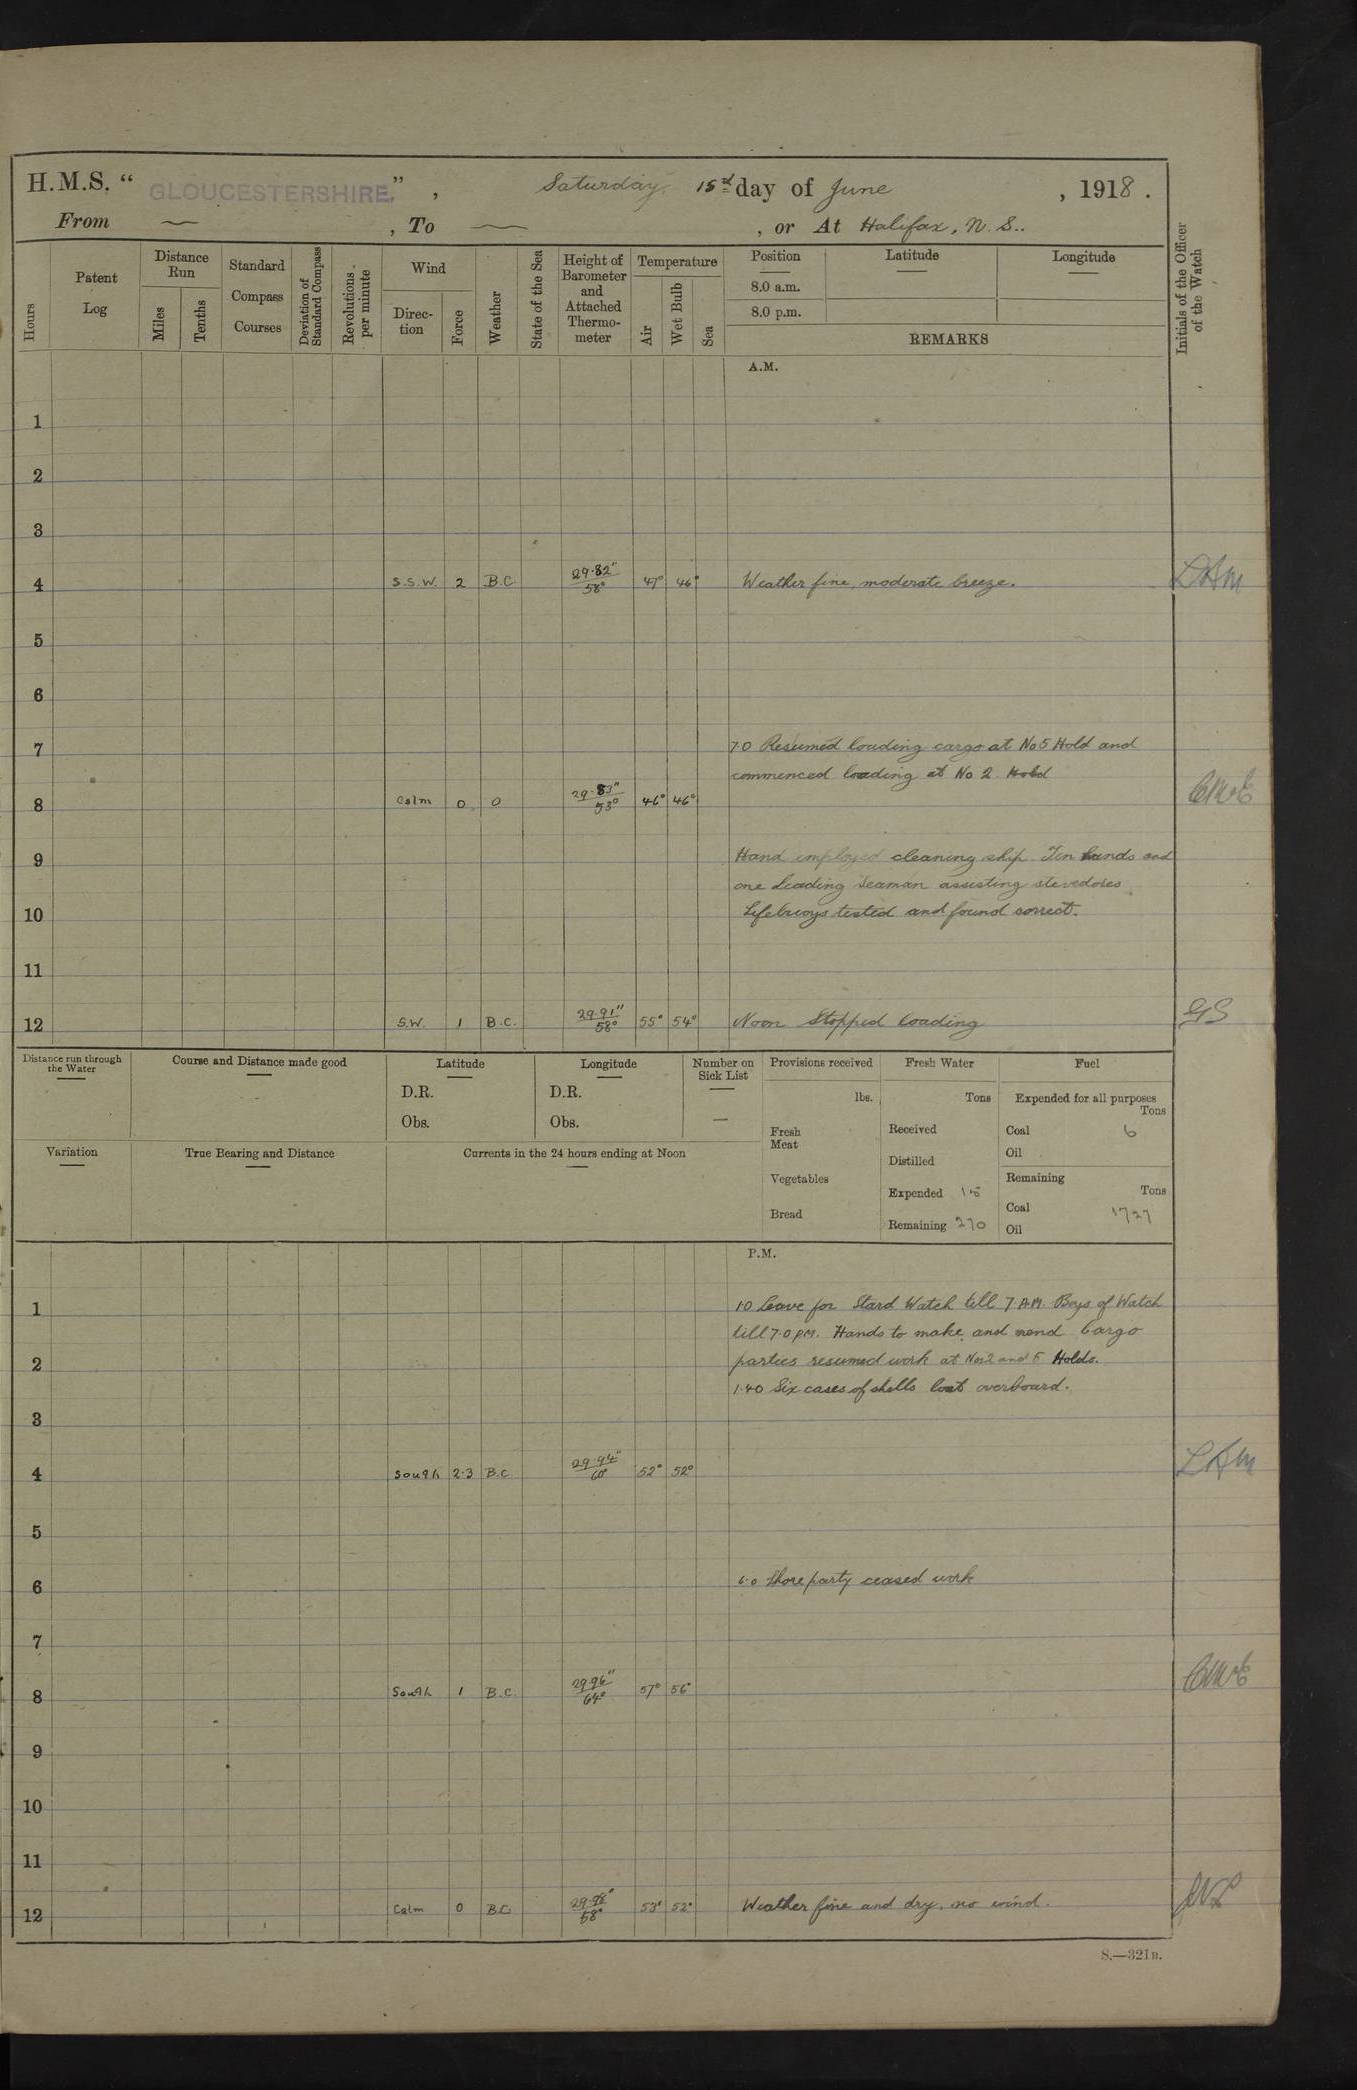 H.M.S. “ GLOUCESTERSHIRE. ” , Saturday. 15th day of June , 1918 .
From ~ , To ~ , or At Halifax, N. S..
Hours
Patent Log
Distance Run
Miles
Tenths
Standard Compass Courses
Deviation of Standard Compass
Revolutions per minute
Wind
Direc-tion
Force
Weather
State of the Sea
Height of Barometer and Attached Thermo-meter
Temperature
Air
Wet Bulb
Sea
Position
8.0 a.m.
8.0 p.m.
Latitude
Longitude
REMARKS
Initials of the Officer of the Watch
A.M.
1
2
3
4 S.S.W. 2 B.C 29.82" 58° 47° 46° Weather fine, moderate breeze.
5
6
7 7.0 Resumed loading cargo at No 5 Hold and
commenced loading at No 2 Hold
8 Calm 0 0 29.83" 53° 46° 46°
9 Hand employed cleaning ship. Ten hands and
one Leading Seaman assisting stevedores
10 Lifebuoys tested and found correct.
11
12 S.W. 1 B.C. 29.91" 58° 55° 54° Noon Stopped loading GS
Distance run through the Water
Course and Distance made good
Latitude
D.R.
Obs.
Longitude
D.R.
Obs.
Number on Sick List
—
Provisions received
lbs.
Fresh Meat
Vegetables
Bread
Fresh Water
Tons
Received
Distilled
Expended 15
Remaining 270
Fuel
Expended for all purposes
Tons
Coal 6
Oil
Remaining
Tons
Coal 1727
Oil
Variation
True Bearing and Distance
Currents in the 24 hours ending at Noon
P.M.
1 1.0 Leave for Stard Watch till 7 A.M. Boys of Watch
till 7.0 P.M. Hands to make and mend Cargo
2 parties resumed work at Nos 2 and 5 Holds.
1.40 Six cases of shells lost overboard.
3
4 South 2.3 B.C 29.94" 60° 52° 52°
5
6 6.0 Shore party ceased work
7
8 South 1 B.C. 29.96" 64° 57° 56°
9
10
11
12 Calm 0 B.C. 29.98" 58° 53° 52° Weather fine and dry, no wind.
S.—321B.